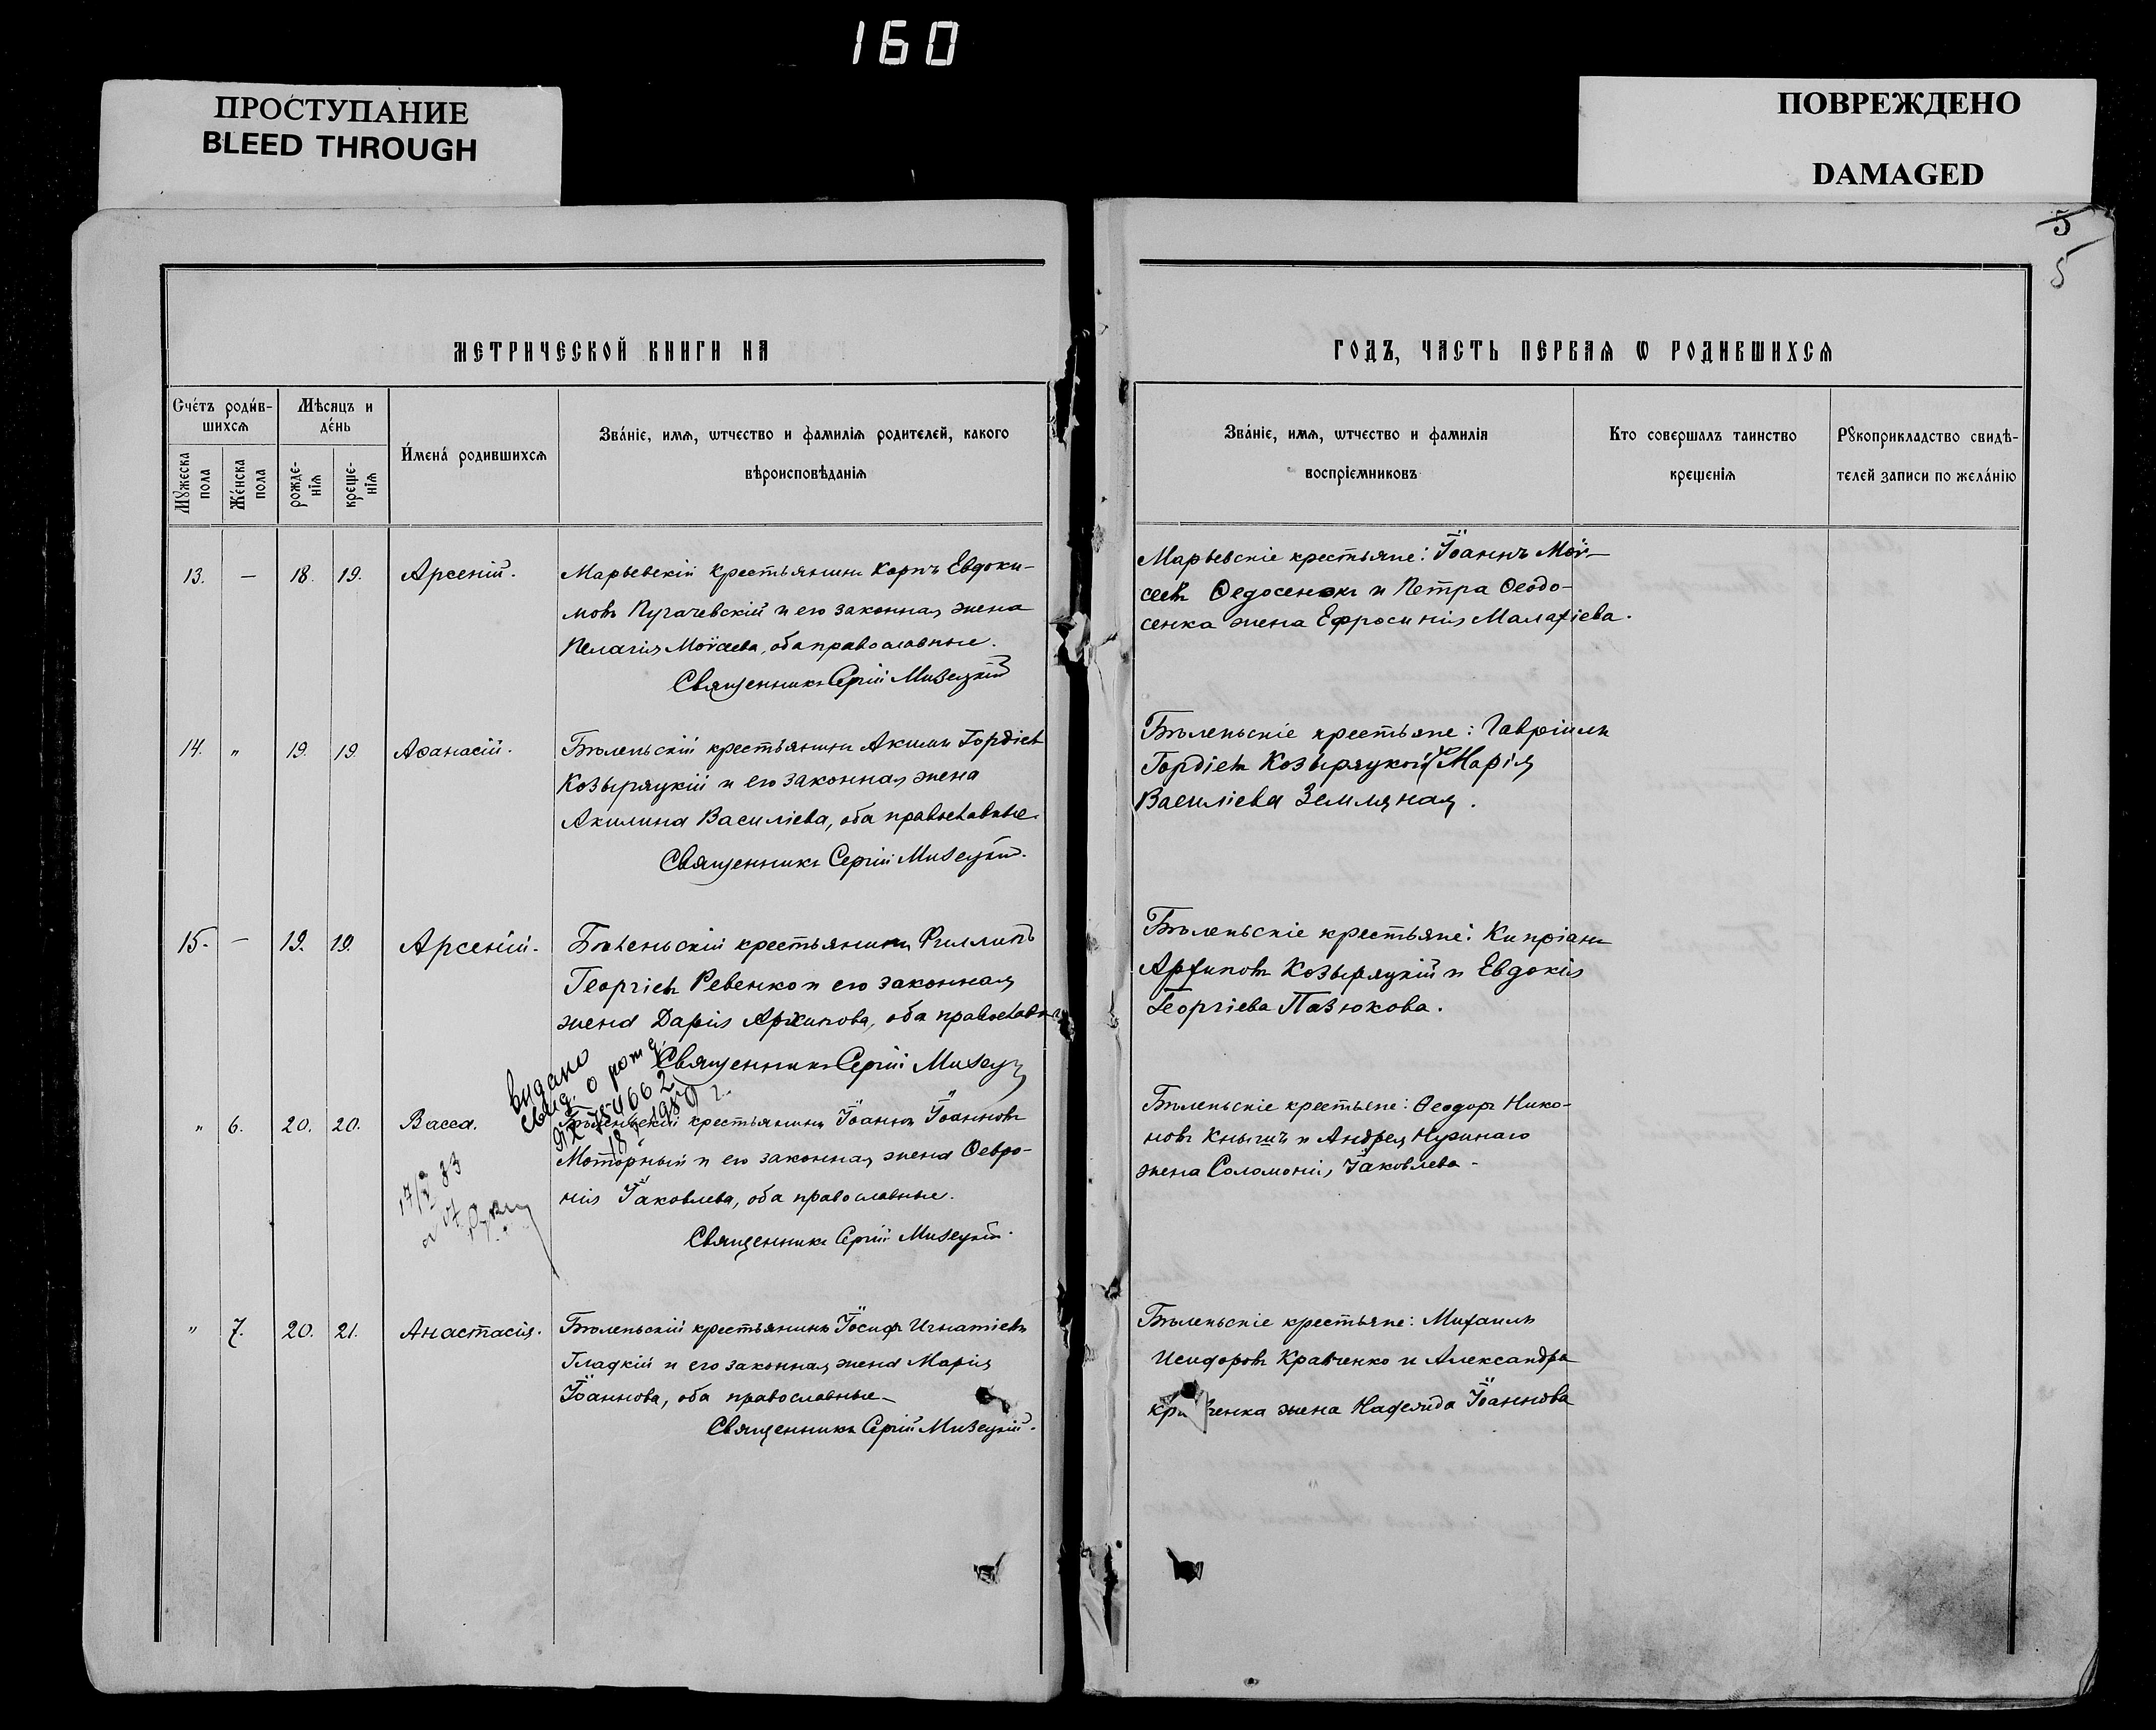 160
ПРОСТУПАНИЕ
BLEED THROUGH
ПОВРЕЖДЕНО
DAMAGED
5
5
МЕТРИЧЕСКОЙ КНИГИ НА
ГОДЪ, ЧАСТЬ ПЕРВАѦ Ѡ РОДИВШИХСѦ
Сче́тъ роди́в-
шихсѧ
Мѣсяцъ и
де́нь
Мꙋжеска
пола
Же́нска
пола
рожде-
нїѧ
креще-
нїѧ
И҆мена́ родившихсѧ
Зва́нїе, имѧ, ѡтчество и фамилїѧ родителей, какого
вѣроисповѣданїѧ
Зва́нїе, имѧ, ѡтчество и фамилїѧ
воспрїемниковъ
Кто совершалъ таинство
крещенїѧ
Рꙋкоприкладство свидѣ-
телей записи по жела́нїю
13. — 18. 19. Арсеній.
Марьевскій крестьянинъ Карпъ Евдоки-
мовъ Пугачевскій и его законная жена
Пелагія Моѵсеева, оба православные.
Священникъ Сергій Мизецкій
Марьевскіе крестьяне: Іоаннъ Моѵ-
сеевъ Ѳедосенокъ и Петра Ѳеодо-
сенка жена Ефросинія Малахіева.
14. " 19. 19. Аѳанасій.
Бѣленьскій крестьянинъ Акимъ Гордіевъ
Козыряцкій и его законная жена
Акилина Василіева, оба православные.
Священникъ Сергій Мизецкій.
Бѣленьскіе крестьяне: Гавріилъ
Гордіевъ Козыряцкій и Марія
Василіева Земляная.
15. — 19. 19. Арсеній.
Бѣленьскій крестьянинъ Филлипъ
Георгіевъ Ревенко и его законная
жена Дарія Архипова, оба православн
Священникъ Сергій Мизец
Бѣленьскіе крестьяне: Кипріанъ
Архиповъ Козыряцкій и Евдокія
Георгіева Пазюкова.
видано
свид. о рожд.
" 6. 20. 20. Васса.
17/ 83
Бѣленьскій крестьянинъ Іоаннъ Іоанновъ
Моторный и его законная жена Ѳевро-
нія Іаковлева, оба православные.
Священникъ Сергій Мизецкій.
Бѣленьскіе крестьяне: Ѳеодоръ Нико-
новъ Кнышъ и Андрея Нужнаго
жена Соломонія Іаковлева.
" 7. 20. 21. Анастасія.
Бѣленьскій крестьянинъ Іосифъ Игнатіевъ
Гладкій и его законная жена Марія
Іоаннова, оба православные
Священникъ Сергій Мизецкій.
Бѣленьскіе крестьяне: Михаилъ
Исидоровъ Кравченко и Александра
жена Іоаннова